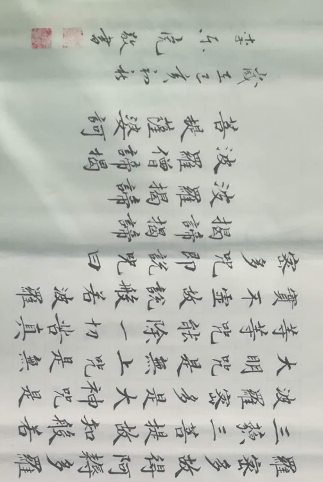 羅密多故得阿耨多羅
三藐三菩提故知般若
波羅密多是大神咒是
大明咒是無上咒是無
等等咒能除一切苦真
實不虛故說般若波羅
密多咒即說咒曰
揭諦揭諦
波羅揭諦
波羅僧揭諦
菩提薩婆訶
歲在己亥初秋
敬書